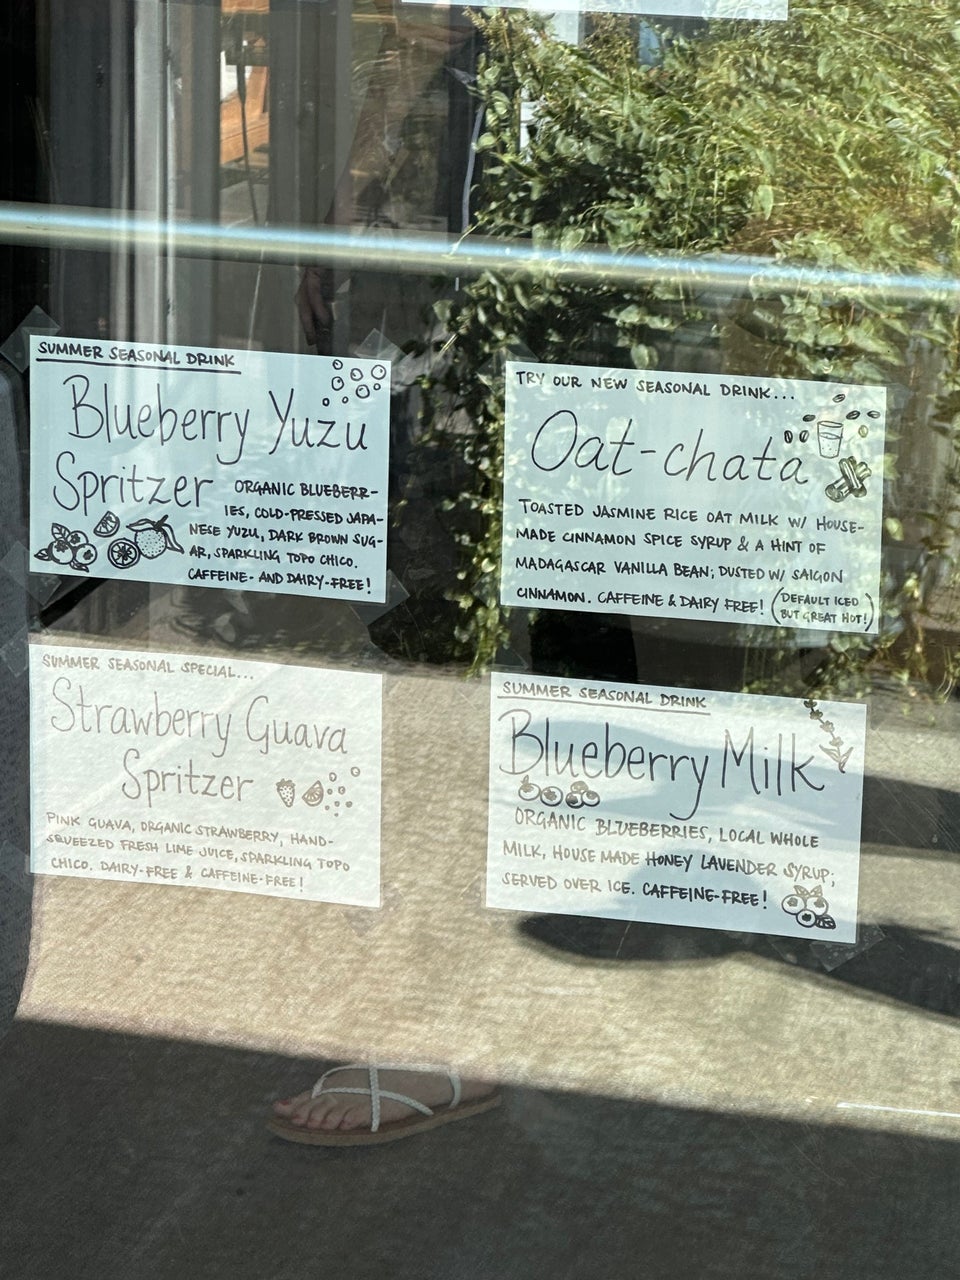 SUMMER SEASONAL DRINK
Blueberry Yuzu
Spritzer
ORGANIC BLUEBERR-
IES, COLD-PRESSED JAPA-
NESE YUZU, DARK BROWN SUG-
AR, SPARKLING TOPO CHICO.
CAFFEINE- AND DAIRY-FREE!
TRY OUR NEW SEASONAL DRINK...
Oat-chata
TOASTED JASMINE RICE OAT MILK W/ HOUSE-
MADE CINNAMON SPICE SYRUP & A HINT OF
MADAGASCAR VANILLA BEAN; DUSTED W/ SAIGON
CINNAMON. CAFFEINE & DAIRY FREE!
(DEFAULT ICED
BUT GREAT HOT!)
SUMMER SEASONAL SPECIAL...
Strawberry Guava
Spritzer
PINK GUAVA, ORGANIC STRAWBERRY, HAND-
SQUEEZED FRESH LIME JUICE, SPARKLING TOPO
CHICO. DAIRY-FREE & CAFFEINE-FREE!
SUMMER SEASONAL DRINK
Blueberry Milk
ORGANIC BLUEBERRIES, LOCAL WHOLE
MILK, HOUSE MADE HONEY LAVENDER SYRUP;
SERVED OVER ICE. CAFFEINE-FREE!